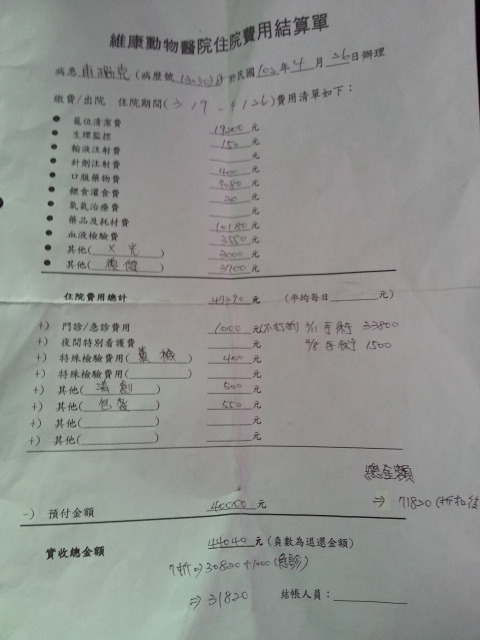 維康動物醫院住院費用結算單
病患 (病歷號 130303) 於民國 102 年 4 月 26 日辦理
繳費/出院 住院期間(3/19 - 4/26)費用清單如下：
● 籠位清潔費 19200 元
● 生理監控 150 元
● 輸液注射費 元
● 針劑注射費 400 元
● 口服藥物費 7080 元
● 餵食灌食費 30 元
● 氧氣治療費 元
● 藥品及耗材費 10180 元
● 血液檢驗費 3550 元
● 其他( X光 ) 3000 元
● 其他( 復健 ) 3700 元
住院費用總計 47290 元 (平均每日 元)
+) 門診/急診費用 1000 元(不打折) 手術 33800
+) 夜間特別看護費 元 4/8 手術 1500
+) 特殊檢驗費用( 糞檢 ) 400 元
+) 特殊檢驗費用( ) 元
+) 其他( 清創 ) 500 元
+) 其他( 包紮 ) 550 元
+) 其他( ) 元
+) 其他( ) 元
總金額
⇒ 71820 (折扣後
-) 預付金額 40000 元
實收總金額 44040 元 (負數為退還金額)
7折⇒30820+1000(急診)
⇒ 31820 結帳人員：